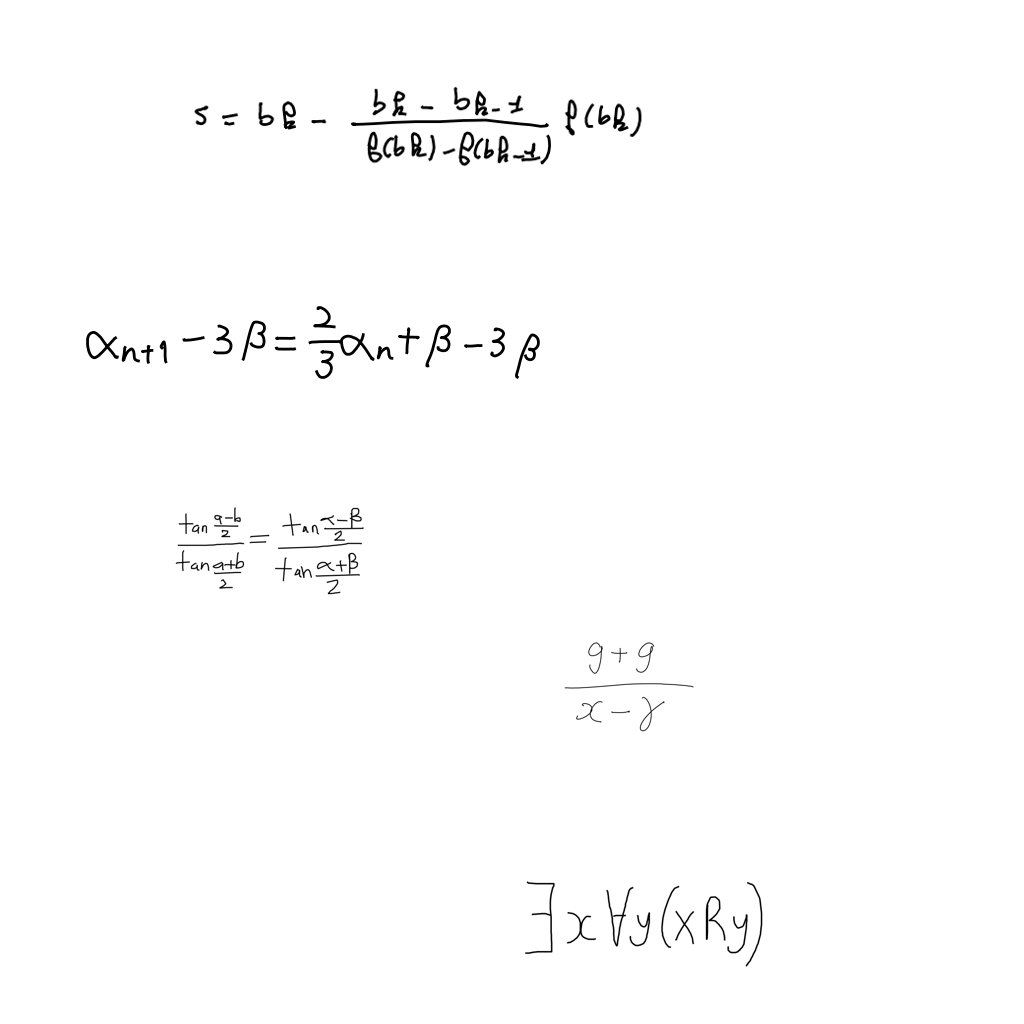 s = b_k - \frac{b_k - b_{k-1}}{f(b_k) - f(b_{k-1})} f(b_k)
\alpha_{n+1} - 3\beta = \frac{2}{3}\alpha_n + \beta - 3\beta
\frac{\tan\frac{a-b}{2}}{\tan\frac{a+b}{2}} = \frac{\tan\frac{\alpha-\beta}{2}}{\tan\frac{\alpha+\beta}{2}}
\frac{g+g}{x-\gamma}
\exists x \forall y (x R y)